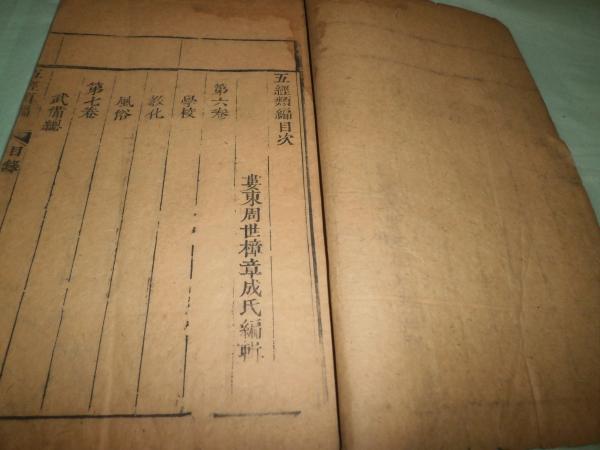 五經類編目次
婁東周世樟章成氏編輯
第六卷
學校
教化
風俗
第七卷
武備總
五經類編 目錄